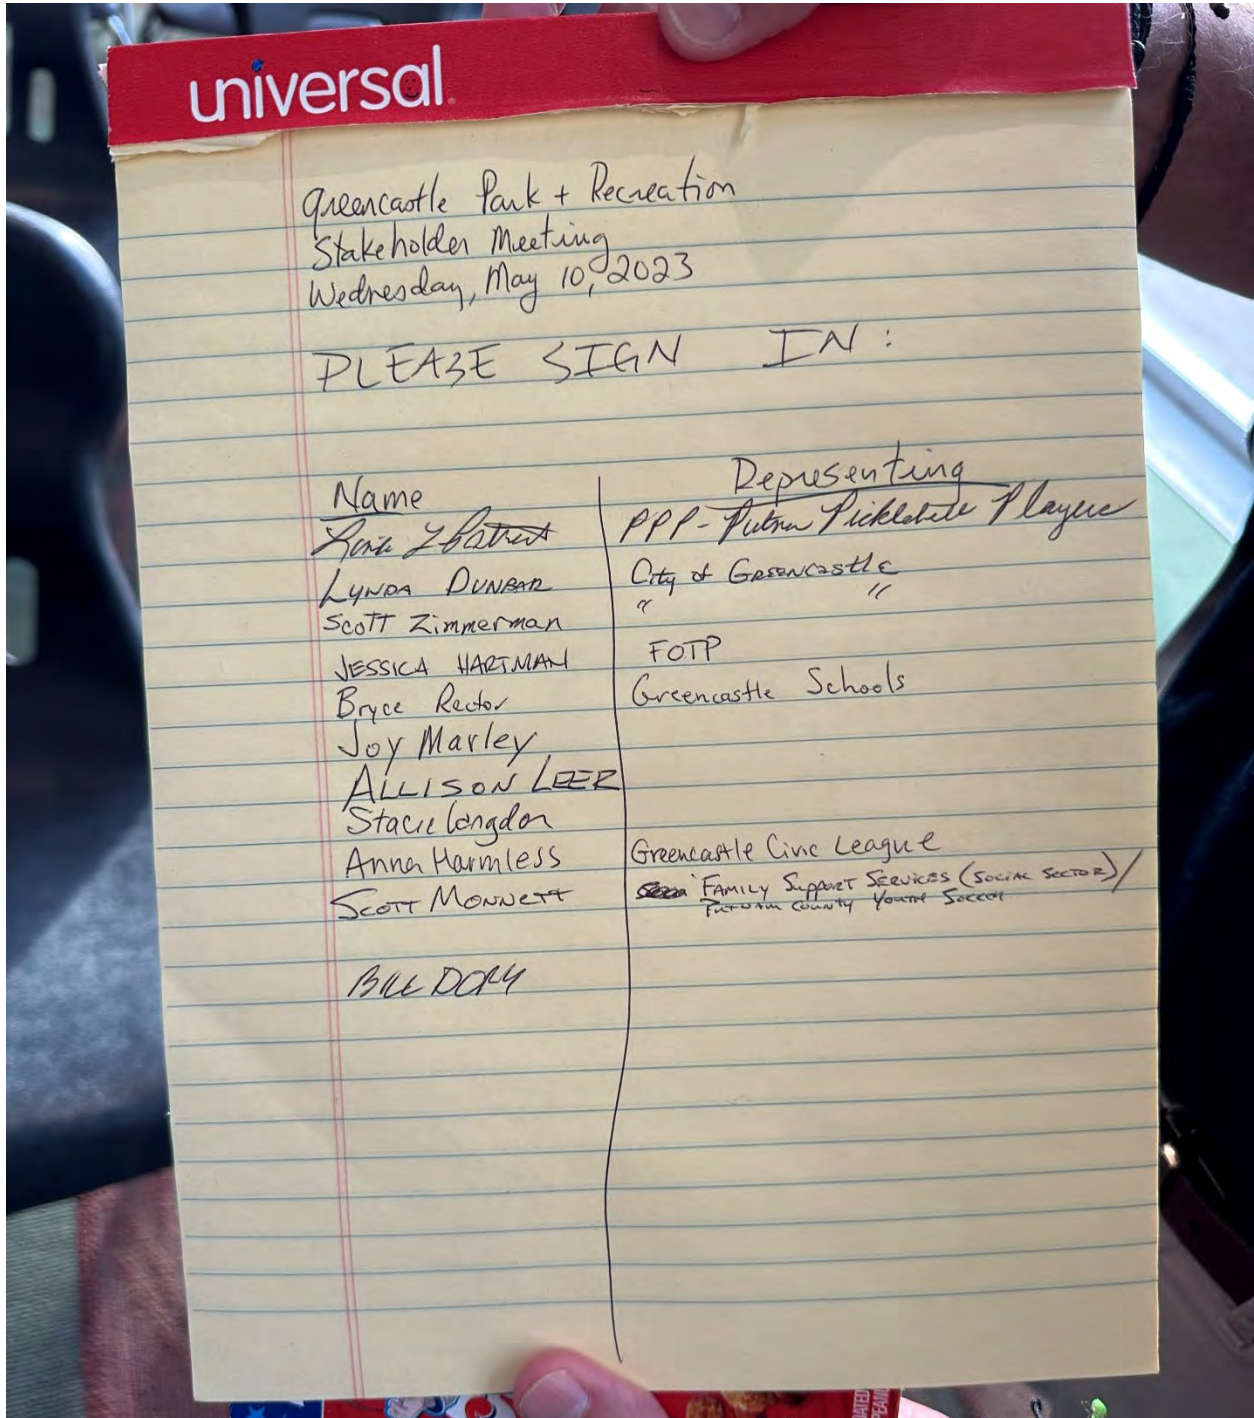 universal
Greencastle Park + Recreation
Stakeholder Meeting
Wednesday, May 10, 2023
PLEASE SIGN IN:
Name Representing
PPP- Pickleball Players
LYNDA DUNBAR City of Greencastle
Scott Zimmerman " "
JESSICA HARTMAN FOTP
Bryce Rector Greencastle Schools
Joy Marley
ALLISON LEER
Stacie Langdon
Anna Harmless Greencastle Civic League
SCOTT MONNETT FAMILY SUPPORT SERVICES (SOCIAL SECTOR) /
PUTNAM COUNTY YOUTH SOCCER
BILL DORY